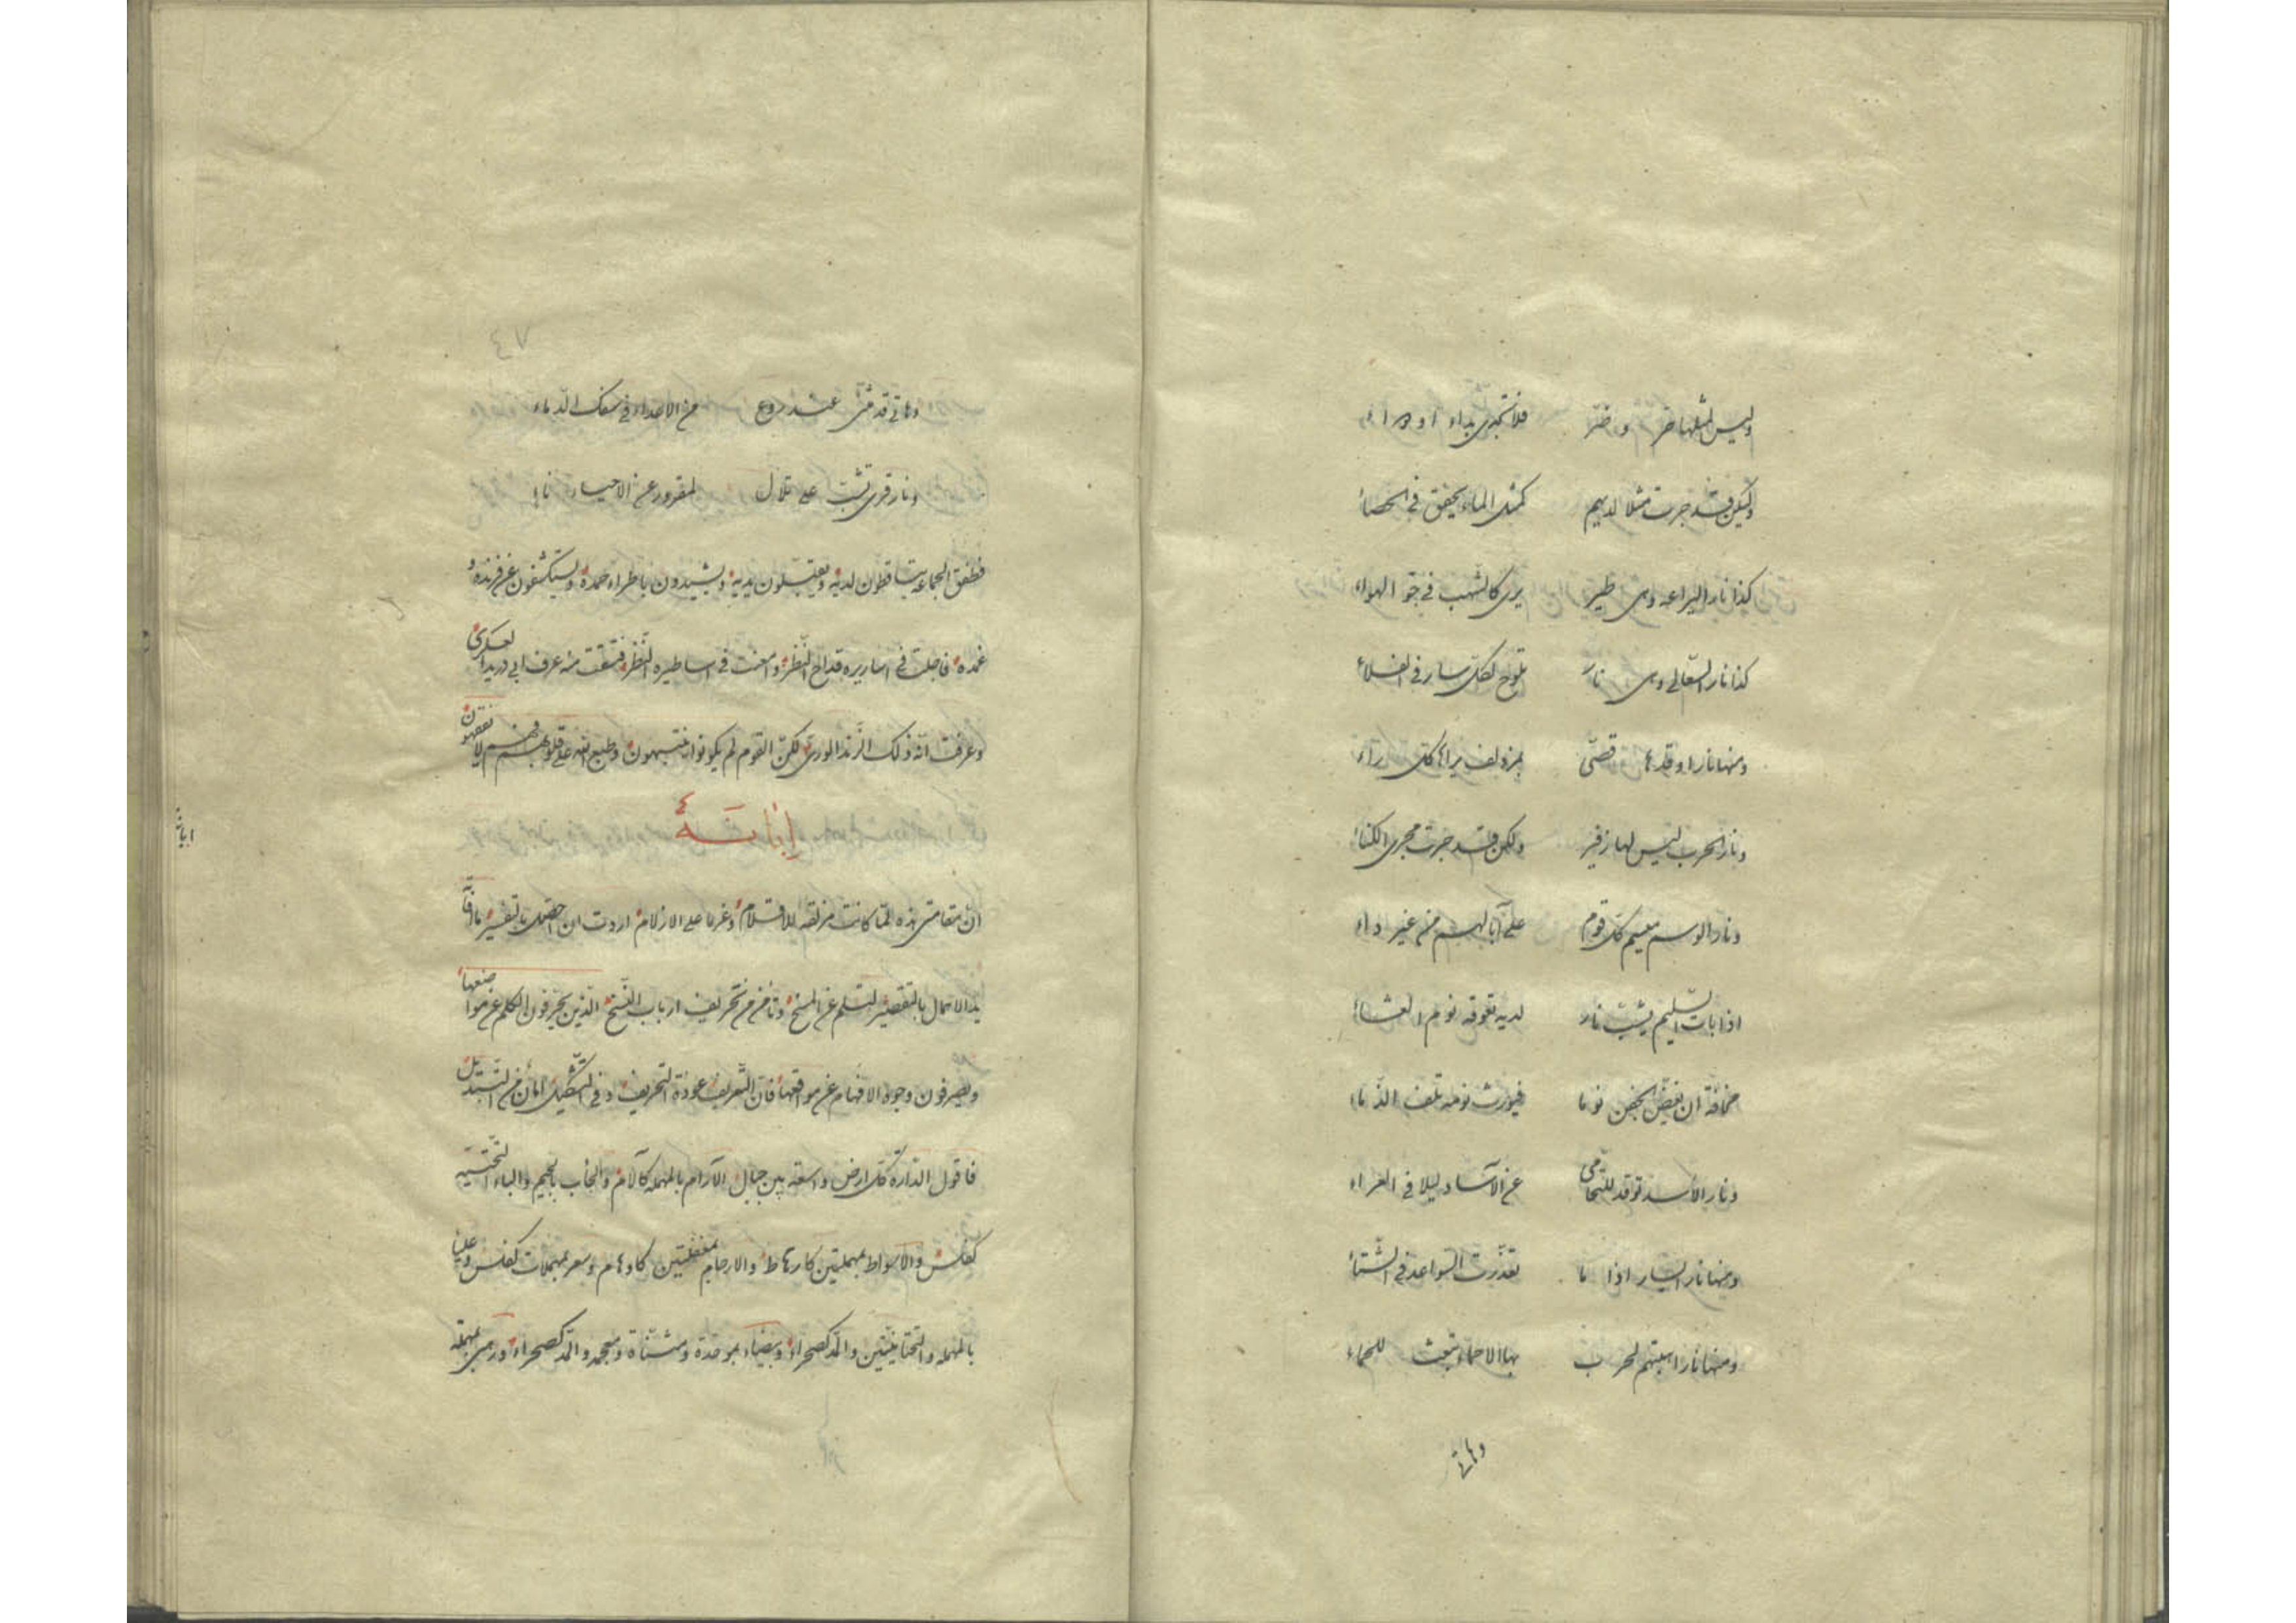 وليس لمثلها حر و ضر فلا تجدى بداء او دواء
ولكن قد جرت مثلا لديهم كمثل الماء يخفق في الحصاء
كذا نار اليراعه وهى طير يرى كالشهب في جو الهواء
كذا نار السعالى وهى نار تلوح لكل سار فى الفلاء
ومنها نار اوقدها قصى بمزدلف يراها كل راء
ونار الحرب ليس لها زفير ولكن قد جرت مجرى الكناء
ونار الوسم ميسم كل قوم على آبالهم من غير داء
اذا بات السليم يشب نار لديه تعوقه نوم العشاء
مخافة ان يغض الجفن نوما فيورث نومه تلف الذماء
ونار الأسد توقد للتحامى عن الآساد ليلا فى العراء
ومنها نار ايسار اذا ما تعذرت السواعد في الشتاء
ومنها نار اهبتهم لحرب بها الاحماء تبعث للحماء
وهاتى
٤٧
وهاتى قد مثنى عند روع من الاعداء فى سفك الدماء
ونار قرى تشب على تلال لمقرور عن الاحياء ناء
فطفق الجماعة يتساقطون لديه ويقبلون يديه ويشيدون باطراء حمده ويستكشفون عن فرنده و
غمده فاجلت فى اساريره قداح النظر وامعنت فى اساطيره النظر فتنشقت منه عرف ابى دريد العسكرى
وعرفت انه ذلك الزند الورى لكن القوم لم يكونوا ينتبهون وطبع الله على قلوبهم فهم لا يفقهون
إبانة
ابانة
ان مقامتى هذه لما كانت مزلقه للاقلام وغرما على الازلام اردت ان احصل بالتفسير ما فات
يد الامال بالتقصير لتسلم عن المسخ وتأمن من تحريف ارباب النسخ الذين يحرفون الكلم عن مواضعها
ويصرفون وجوه الافهام عن مواقعها فان التعريف عوذة التحريف وفى التشكيل امان من التبديل
فاقول الدارة كل ارض واسعة بين جبال الآرام بالمهمله كآلام والجأب بالجيم والباء التحتيه
كفلس والاسواط بمهملتين كارهاط والارجام بمنقطتين كاوهام وسعر بمهملات كفلس وعليا
بالمهمله والتحتانيتين والمد كصحراء وبيضاء بموحدة ومثناة ومعجمه والمد كصحراء ورمى بمهمله